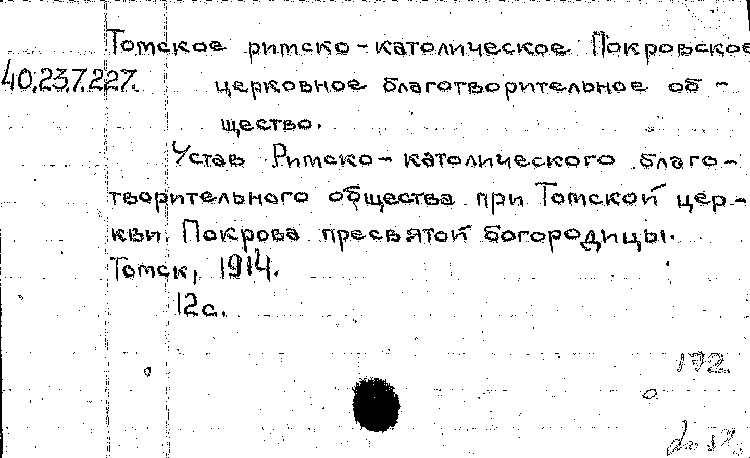 Томское римско-католическое Покровское
40.237.227.
церковное благотворительное об-
щество.
Устав Римско-католического благо-
творительного общества при Томской цер-
кви Покрова пресвятой богородицы.
Томск, 1914.
12с.
172